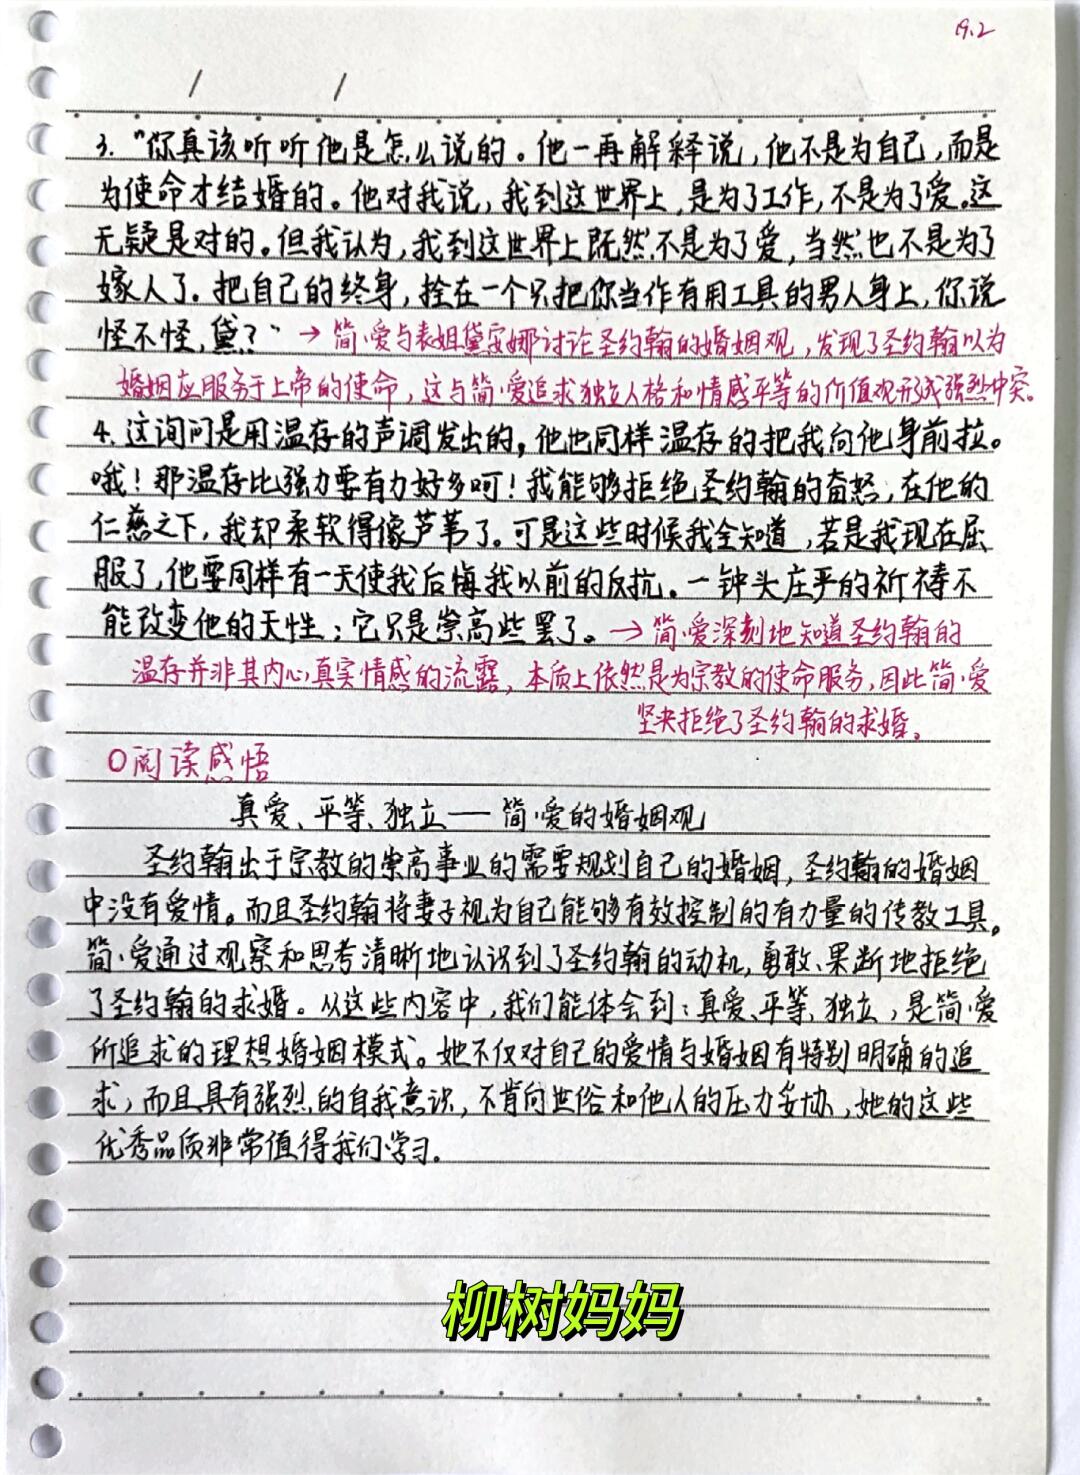 19.2
/ /
3. “你真该听听他是怎么说的。他一再解释说，他不是为自己，而是
为使命才结婚的。他对我说，我到这世界上，是为了工作，不是为了爱。这
无疑是对的。但我认为，我到这世界上既然不是为了爱，当然也不是为了
嫁人了。把自己的终身，拴在一个只把你当作有用工具的男人身上，你说
怪不怪，黛？” → 简·爱与表姐黛安娜讨论圣约翰的婚姻观，发现了圣约翰以为
婚姻应服务于上帝的使命，这与简·爱追求独立人格和情感平等的价值观形成强烈冲突。
4. 这询问是用温存的声调发出的，他也同样温存的把我向他身前拉。
哦！那温存比强力要有力好多呵！我能够拒绝圣约翰的奋怒，在他的
仁慈之下，我却柔软得像芦苇了。可是这些时候我全知道，若是我现在屈
服了，他要同样有一天使我后悔我以前的反抗。一钟头庄严的祈祷不
能改变他的天性；它只是崇高些罢了。→ 简·爱深刻地知道圣约翰的
温存并非其内心真实情感的流露，本质上依然是为宗教的使命服务，因此简·爱
坚决拒绝了圣约翰的求婚。
○阅读感悟
真爱、平等、独立——简·爱的婚姻观
圣约翰出于宗教的崇高事业的需要规划自己的婚姻，圣约翰的婚姻
中没有爱情。而且圣约翰将妻子视为自己能够有效控制的有力量的传教工具。
简·爱通过观察和思考清晰地认识到了圣约翰的动机，勇敢、果断地拒绝
了圣约翰的求婚。从这些内容中，我们能体会到：真爱、平等、独立，是简·爱
所追求的理想婚姻模式。她不仅对自己的爱情与婚姻有特别明确的追
求，而且具有强烈的自我意识，不肯向世俗和他人的压力妥协，她的这些
优秀品质非常值得我们学习。
柳树妈妈